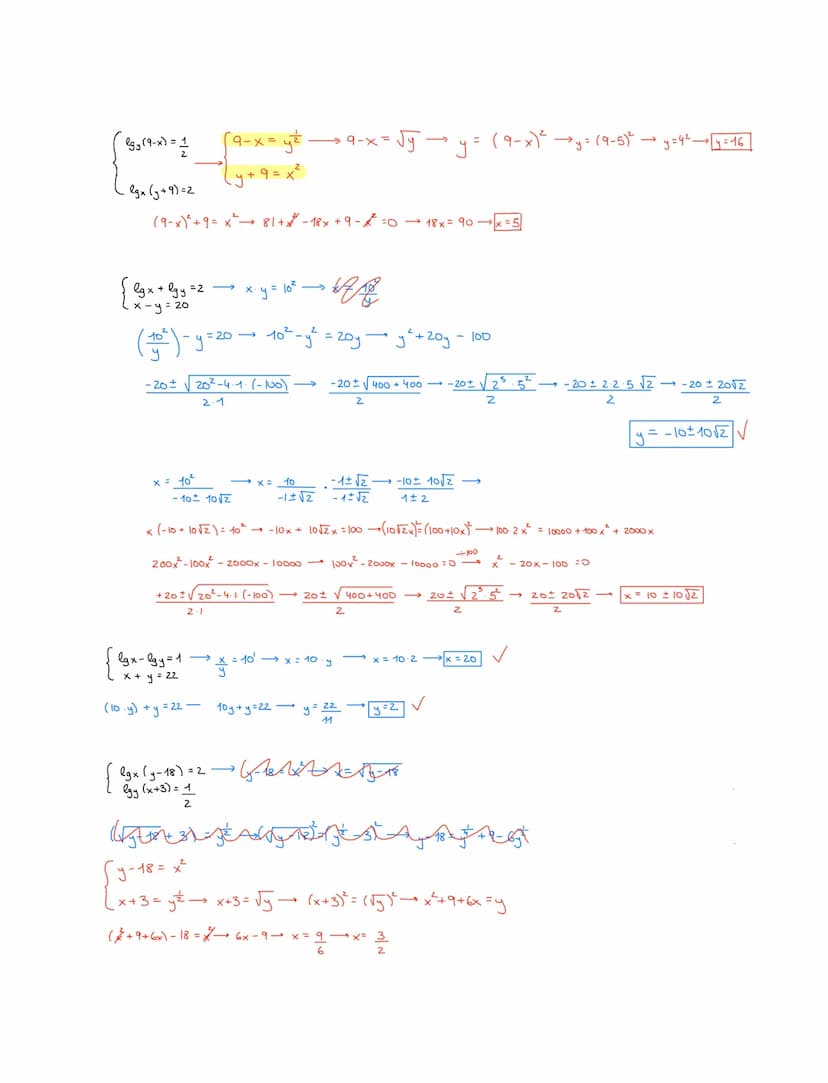 lg_y(9-x) = 1/2 → 9-x = y^(1/2) → 9-x = √y → y = (9-x)² → y = (9-5)² → y=4² → y=16
lg_x(y+9)=2 y+9 = x²
(9-x)²+9 = x² → 81+x²-18x+9-x²=0 → 18x = 90 → x=5
lgx + lgy = 2 → x·y = 10² → x = 10²/y
x - y = 20
(10²/y) - y = 20 → 10²-y² = 20y → y²+20y-100
(-20±√(20²-4·1·(-100)))/(2·1) → (-20±√(400+400))/2 → (-20±√(2⁵·5²))/2 → (-20±2·2·5√2)/2 → (-20±20√2)/2
y = -10±10√2 ✓
x = 10²/(-10±10√2) → x = 10/(-1±√2) · (-1±√2)/(-1±√2) → (-10±10√2)/(1±2) →
x(-10+10√2) = 10² → -10x+10√2x=100 → (10√2x)²=(100+10x)² → 100·2x² = 10000+100x²+2000x
200x²-100x²-2000x-10000 → 100x²-2000x-10000=0 →÷100 x²-20x-100=0
(+20±√(20²-4·1(-100)))/(2·1) → (20±√(400+400))/2 → (20±√(2⁵·5²))/2 → (20±20√2)/2 → x = 10±10√2
lgx-lgy=1 → x/y = 10¹ → x = 10·y → x = 10·2 → x=20 ✓
x+y=22
(10·y)+y=22 — 10y+y=22 → y=22/11 → y=2 ✓
lg_x(y-18)=2 → (y-18=x² → x=√(y-18)
lg_y(x+3)=1/2
((√(y-18)+3)=y^(1/2) → (√(y-18))²=(y^(1/2)-3)² → y-18=y^(1/4)+9-6y^(1/2)
y-18 = x²
x+3 = y^(1/2) → x+3 = √y → (x+3)² = (√y)² → x²+9+6x = y
(x²+9+6x)-18 = x² → 6x-9 → x = 9/6 → x = 3/2